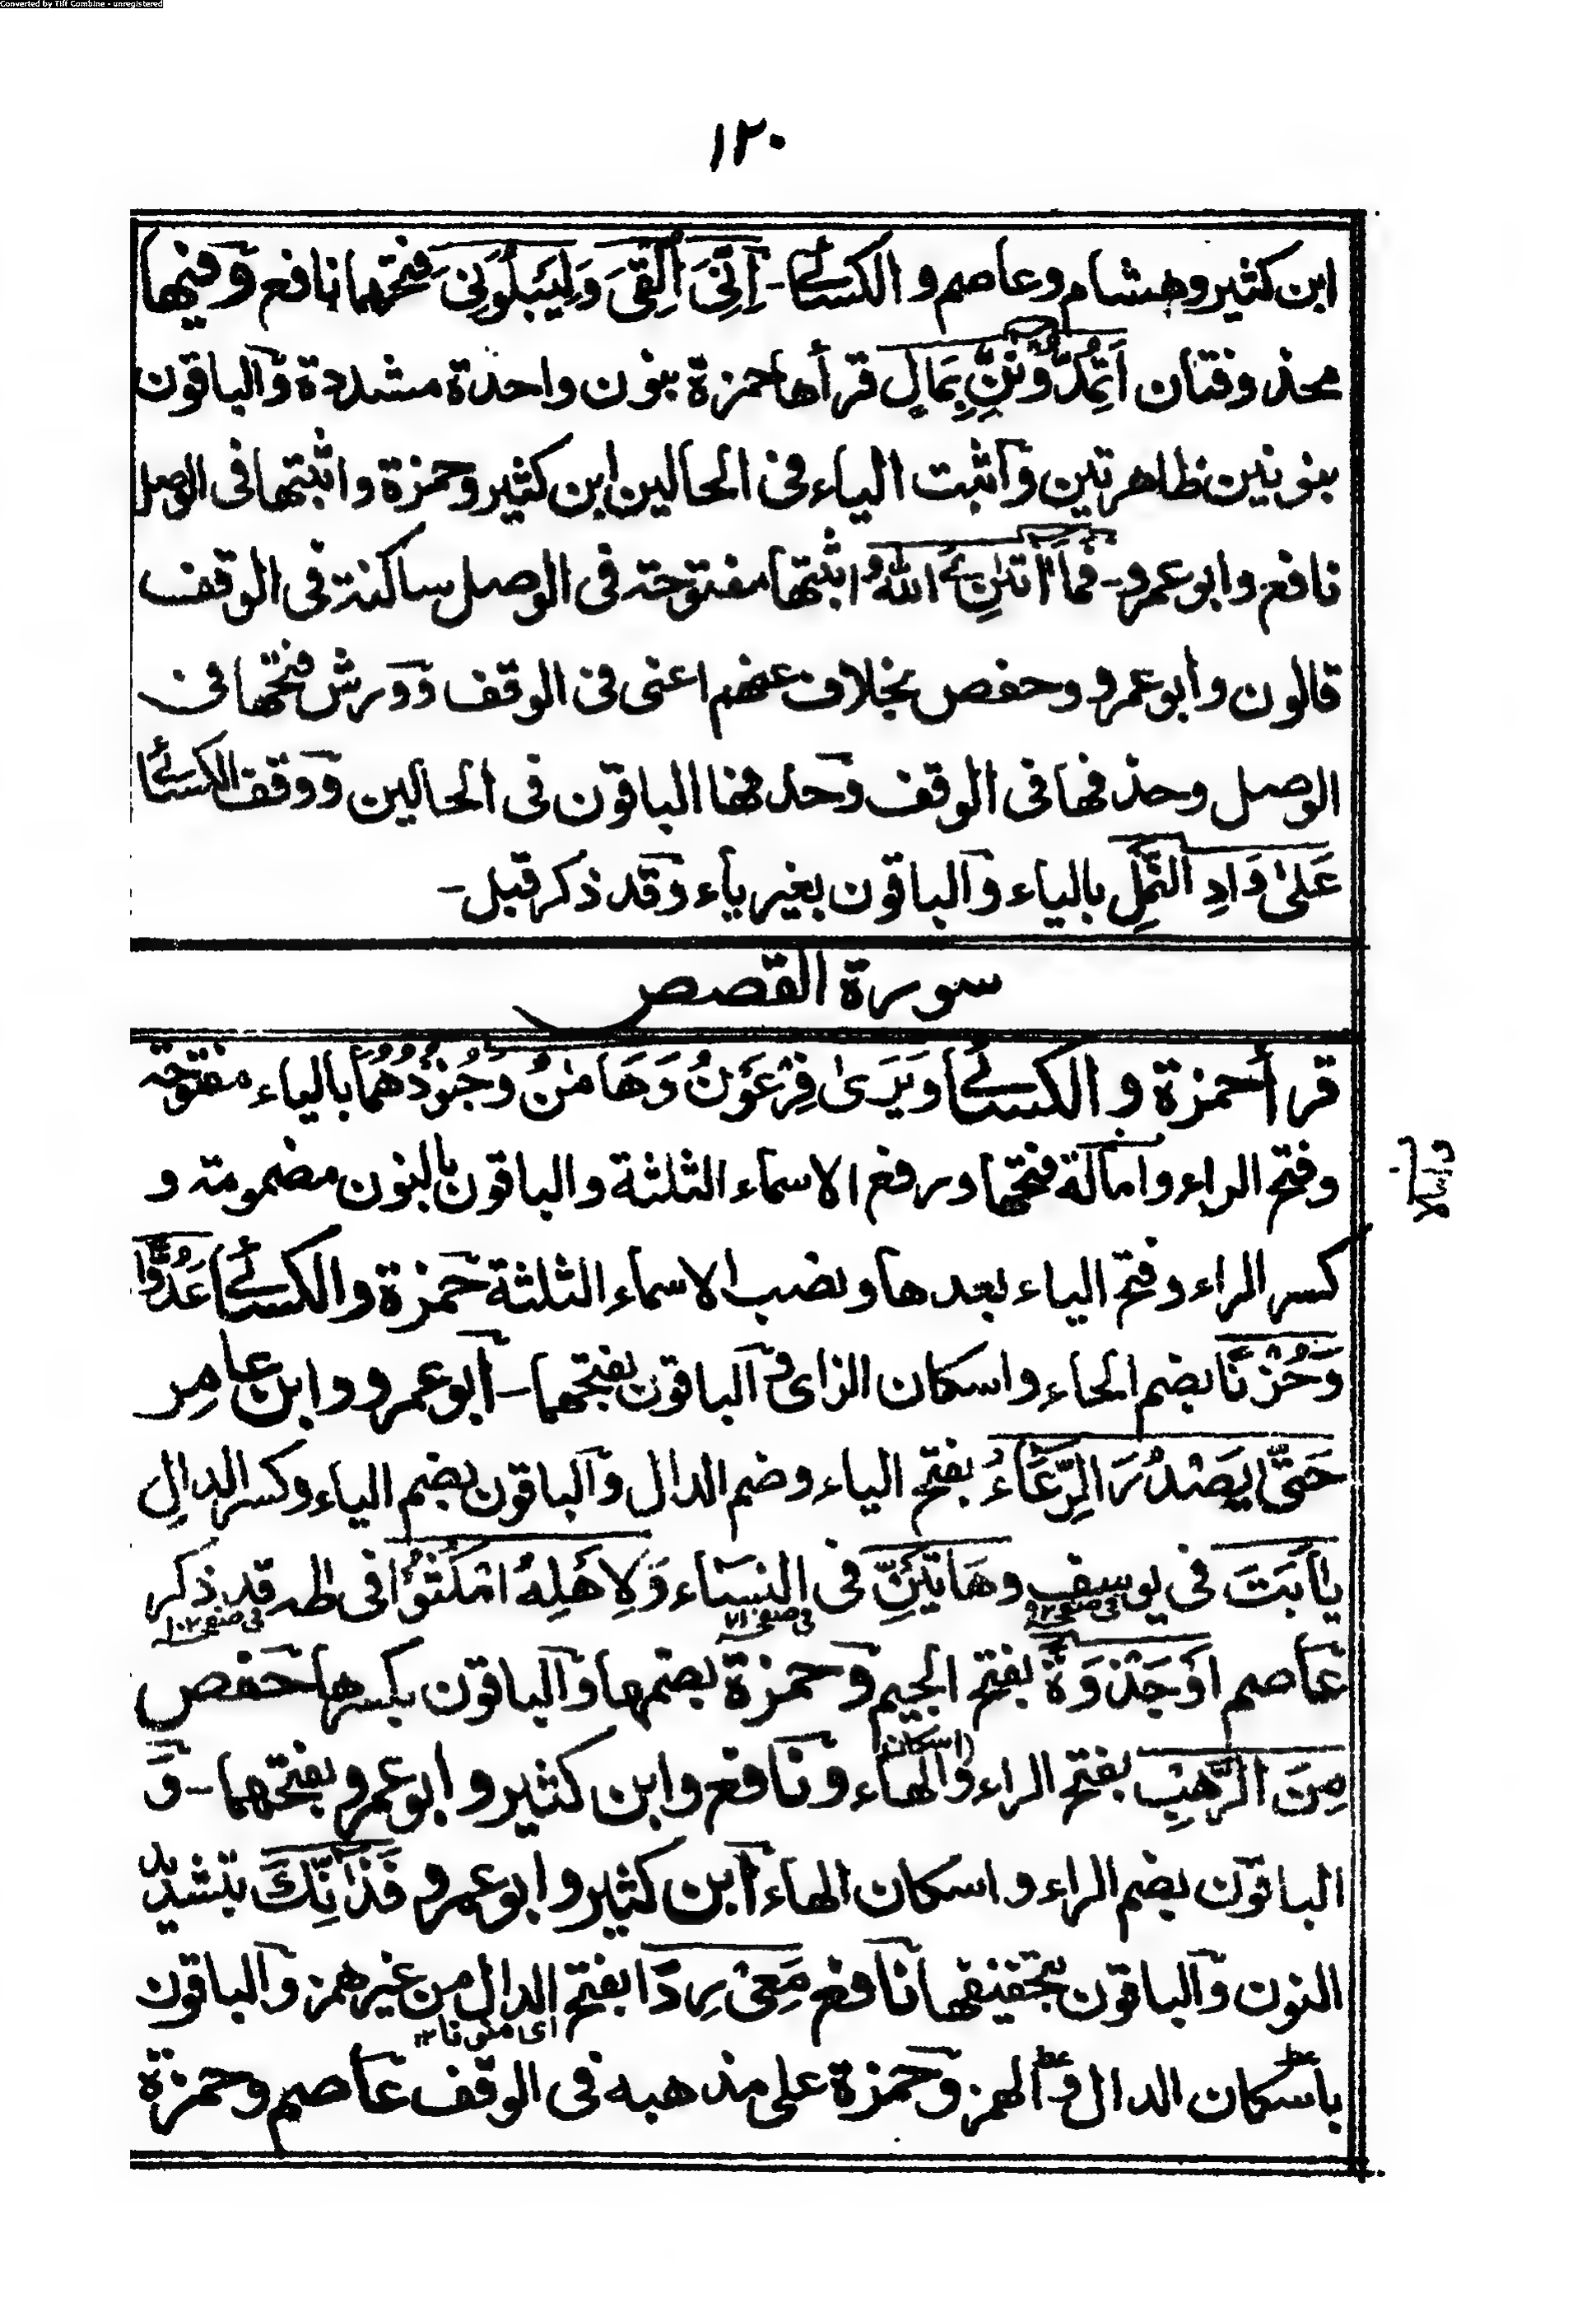 Converted by Tiff Combine - unregistered
١٢٠
ابن كثير وهشام وعاصم و الكسائے - اِنِّىَ اُلْقِىَ وَلِيَبْلُوَنِىَ فتحهما نافع وفيها
محذوفتان اَتُمِدُّوْنَنِّ بِمَالٍ قرأها حمزة بنون واحدة مشددة والباقون
بنونين ظاهرتين وأثبت الياء فى الحالين ابن كثير وحمزة واثبتها فى الوصل
نافع وابو عمرو - فَمَا اٰتٰىنِۦَ اللّٰهُ اثبتها مفتوحة فى الوصل ساكنة فى الوقف
قالون وأبو عمرو وحفص بخلاف عنهم اعنى فى الوقف وورش فتحها فى
الوصل وحذفها فى الوقف وحذفها الباقون فى الحالين ووقف الكسائے
عَلىٰ وَادِ النَّمْلِ بالياء والباقون بغير ياء وقد ذكر قبل -
سورة القصص
قرأ حمزة و الكسائے وَيَرىٰ فِرْعَوْنُ وَهَامٰنُ وَجُنُوْدُهُمَا بالياء مفتوحة
وفتح الراء وامالة فتحها ورفع الاسماء الثلثة والباقون بالنون مضمومة و
كسر الراء وفتح الياء بعدها ونصب الاسماء الثلثة حمزة والكسائے عَدُوًّا
وَحُزْنًا بضم الحاء واسكان الزاى والباقون بفتحهما - أبو عمرو وابن عامر
حَتّٰى يَصْدُرَ الرِّعَاءُ بفتح الياء وضم الدال والباقون بضم الياء وكسر الدال
يٰاَبَتَ فى يوسف وهَاتَيْنِّ فى النساء وَلِاَهْلِهُ امْكُثُوْا فى طه قد ذكر
فى صفو ٩٢ فى صفو ٧١ فى صفو ١٠٢
عاصم اَوْ جَذْوَةٍ بفتح الجيم وحمزة بضمها والباقون بكسرها حفص
مِنَ الرَّهْبِ بفتح الراء و(اسكان) الهاء ونافع وابن كثير وابو عمرو بفتحهما - و
الباقون بضم الراء واسكان الهاء ابن كثير وابو عمرو فَذَانِّكَ بتشديد
النون والباقون بتخفيفها نافع مَعِىْ رِدًا بفتح الدال من غير همز والباقون
اى منونا ١٢
باسكان الدال والهمز وحمزة على مذهبه فى الوقف عاصم وحمزة